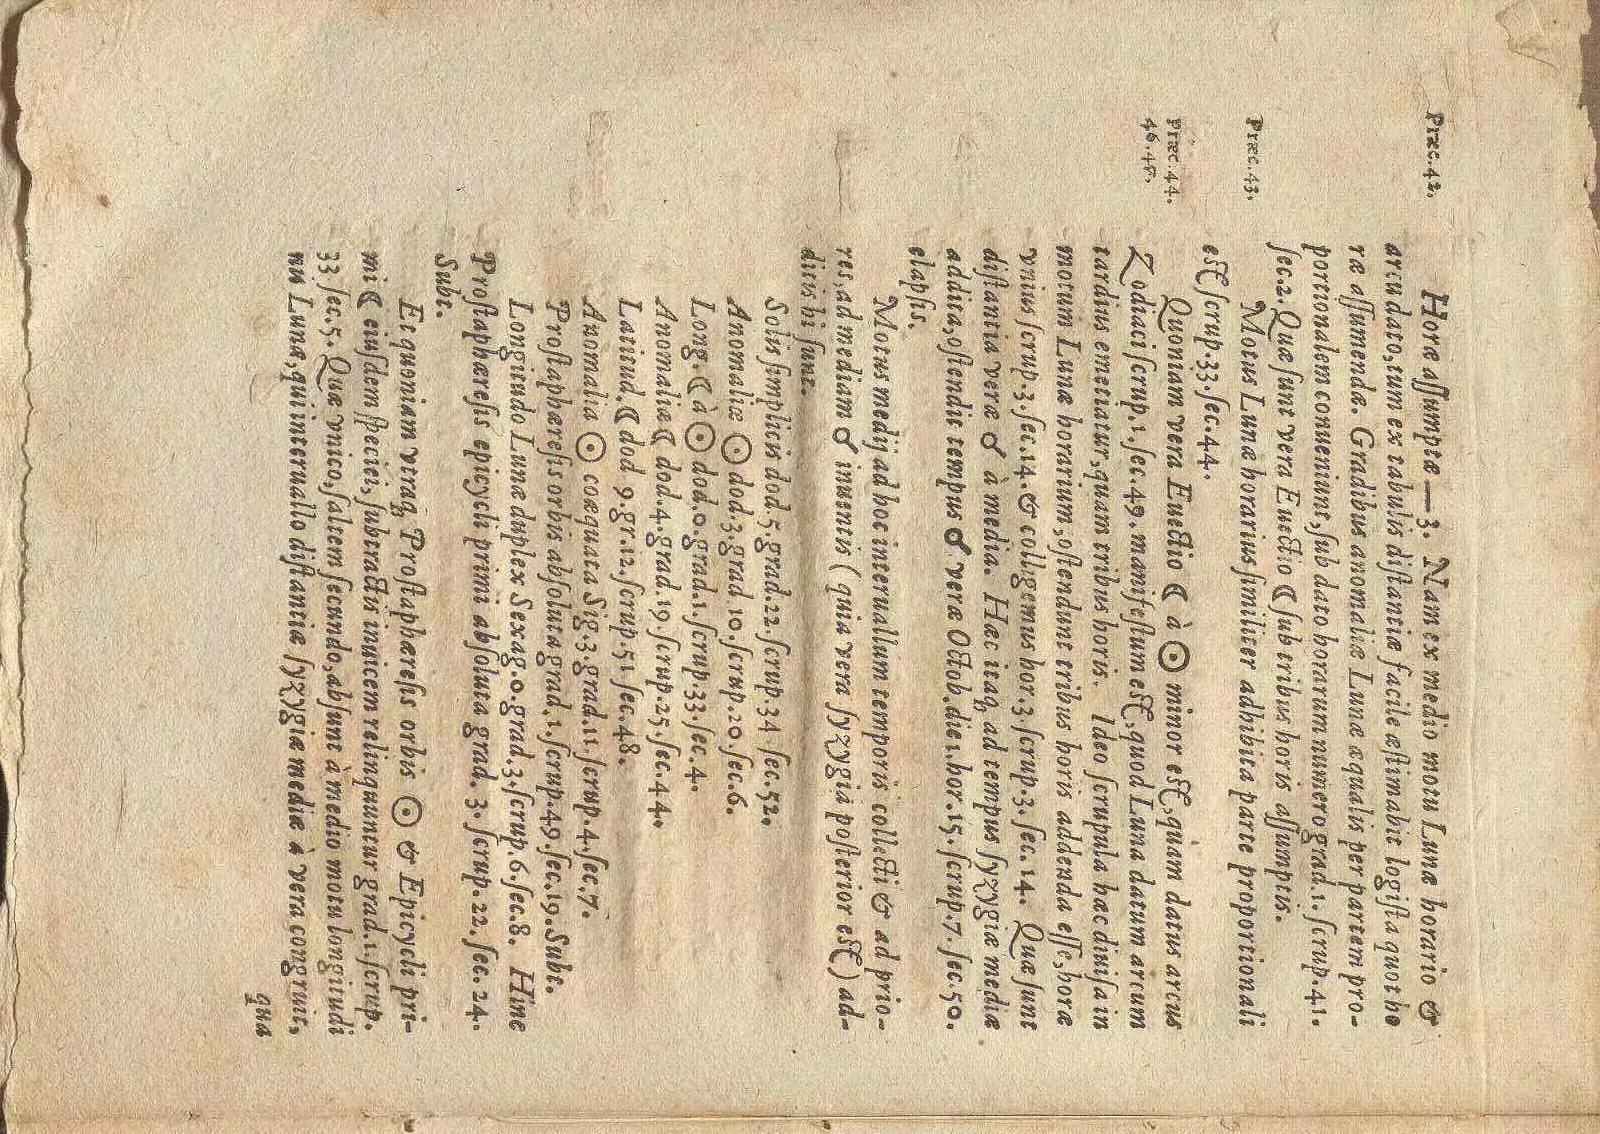 Præc. 42.
Horæ aſſumptæ — 3. Nam ex medio motu Lunæ horario &
arcu dato, tum ex tabulis diſtantiæ facile æſtimabit logiſta quot ho
ræ aſſumendæ. Gradibus anomaliæ Lunæ æqualis per partem pro-
portionalem conueniunt, ſub dato horarum numero grad. 1. ſcrup. 41.
ſec. 2. Quæ ſunt vera Euectio ☾ ſub tribus horis aſſumptis.
Præc. 43.
Motus Lunæ horarius ſimiliter adhibita parte proportionali
eſt ſcrup. 33. ſec. 44.
Præc. 44.
46. 48.
Quoniam vera Euectio ☾ à ☉ minor eſt, quàm datus arcus
Zodiaci ſcrup. 1. ſec. 49. manifeſtum eſt, quod Luna datum arcum
tardius emetiatur, quam tribus horis. Ideo ſcrupula hæc diuiſa in
motum Lunæ horarium, oſtendunt tribus horis addenda eſſe, horæ
vnius ſcrup. 3. ſec. 14. & colligemus hor 3. ſcrup. 3. ſec. 14. Quæ ſunt
diſtantia veræ ☌ à media. Hæc itaq́ ad tempus ſyzygiæ mediæ
addita, oſtendit tempus ☌ veræ Octob. die 1. hor. 15. ſcrup. 7. ſec. 50.
elapſis.
Motus medij ad hoc interuallum temporis collecti & ad prio-
res, ad mediam ☌ inuentis (quia vera ſyzygia poſterior eſt) ad-
ditis hi ſunt.
Solis ſimplicis dod. 5. grad. 22. ſcrup. 34 ſec. 52.
Anomaliæ ☉ dod. 3. grad 10. ſcrup. 20. ſec. 6.
Long. ☾ à ☉ dod. 0. grad. 1. ſcrup. 33. ſec. 4.
Anomalia ☾ dod. 4. grad. 19. ſcrup. 25. ſec. 44.
Latitud. ☾ dod 9. gr. 12. ſcrup. 51 ſec. 48.
Anomalia ☉ coæquata Sig. 3. grad. 11. ſcrup. 4. ſec. 7.
Proſtaphæreſis orbis abſoluta grad. 1. ſcrup. 49. ſec. 19. Subt.
Longitudo Lunæ duplex Sexag. 0. grad. 3. ſcrup. 6. ſec. 8. Hinc
Proſtaphæreſis epicycli primi abſoluta grad. 3. ſcrup. 22. ſec. 24.
Subt.
Et quoniam vtraq́ Proſtaphæreſis orbis ☉ & Epicycli pri-
mi ☾ eiuſdem ſpeciei, ſubtractis inuicem relinquuntur grad. 1. ſcrup.
33 ſec. 5. Quæ vnico, ſaltem ſecundo, abſunt à medio motu longitudi
nis Lunæ, qui interuallo diſtantiæ ſyzygiæ mediæ à vera congruit,
qua